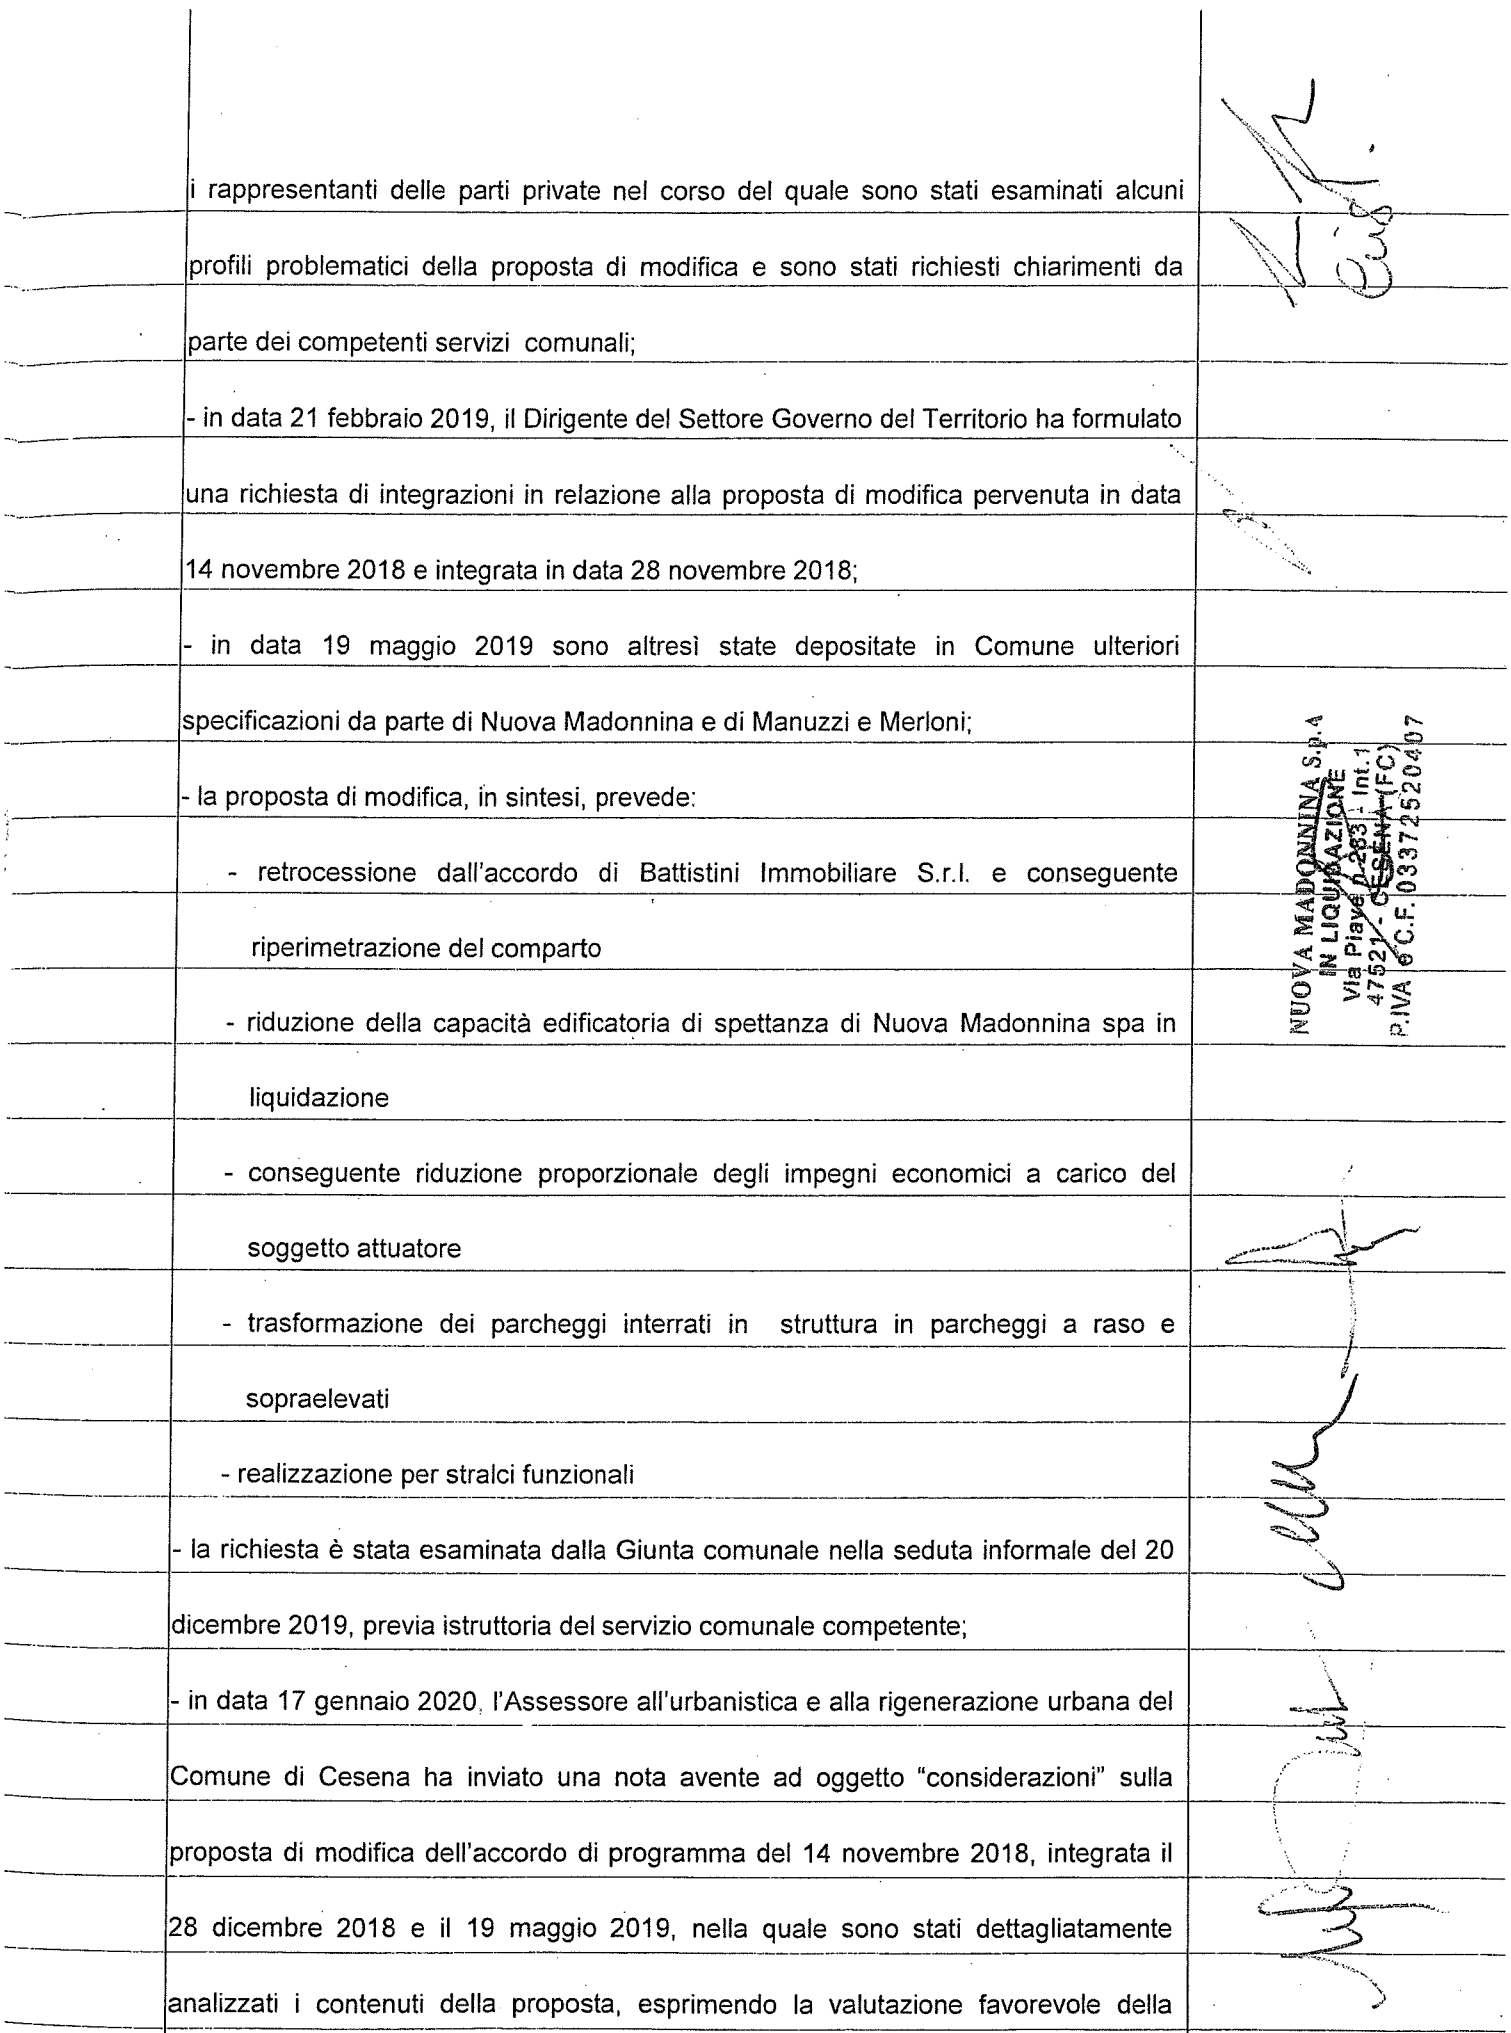 i rappresentanti delle parti private nel corso del quale sono stati esaminati alcuni
profili problematici della proposta di modifica e sono stati richiesti chiarimenti da
parte dei competenti servizi comunali;
- in data 21 febbraio 2019, il Dirigente del Settore Governo del Territorio ha formulato
una richiesta di integrazioni in relazione alla proposta di modifica pervenuta in data
14 novembre 2018 e integrata in data 28 novembre 2018;
- in data 19 maggio 2019 sono altresì state depositate in Comune ulteriori
specificazioni da parte di Nuova Madonnina e di Manuzzi e Merloni;
- la proposta di modifica, in sintesi, prevede:
- retrocessione dall'accordo di Battistini Immobiliare S.r.l. e conseguente
riperimetrazione del comparto
- riduzione della capacità edificatoria di spettanza di Nuova Madonnina spa in
liquidazione
- conseguente riduzione proporzionale degli impegni economici a carico del
soggetto attuatore
- trasformazione dei parcheggi interrati in struttura in parcheggi a raso e
sopraelevati
- realizzazione per stralci funzionali
- la richiesta è stata esaminata dalla Giunta comunale nella seduta informale del 20
dicembre 2019, previa istruttoria del servizio comunale competente;
- in data 17 gennaio 2020, l'Assessore all'urbanistica e alla rigenerazione urbana del
Comune di Cesena ha inviato una nota avente ad oggetto “considerazioni” sulla
proposta di modifica dell'accordo di programma del 14 novembre 2018, integrata il
28 dicembre 2018 e il 19 maggio 2019, nella quale sono stati dettagliatamente
analizzati i contenuti della proposta, esprimendo la valutazione favorevole della
NUOVA MADONNINA S.p.A
IN LIQUIDAZIONE
Via Piave n. 283 - Int.1
47521 - CESENA (FC)
P.IVA e C.F. 03372520407